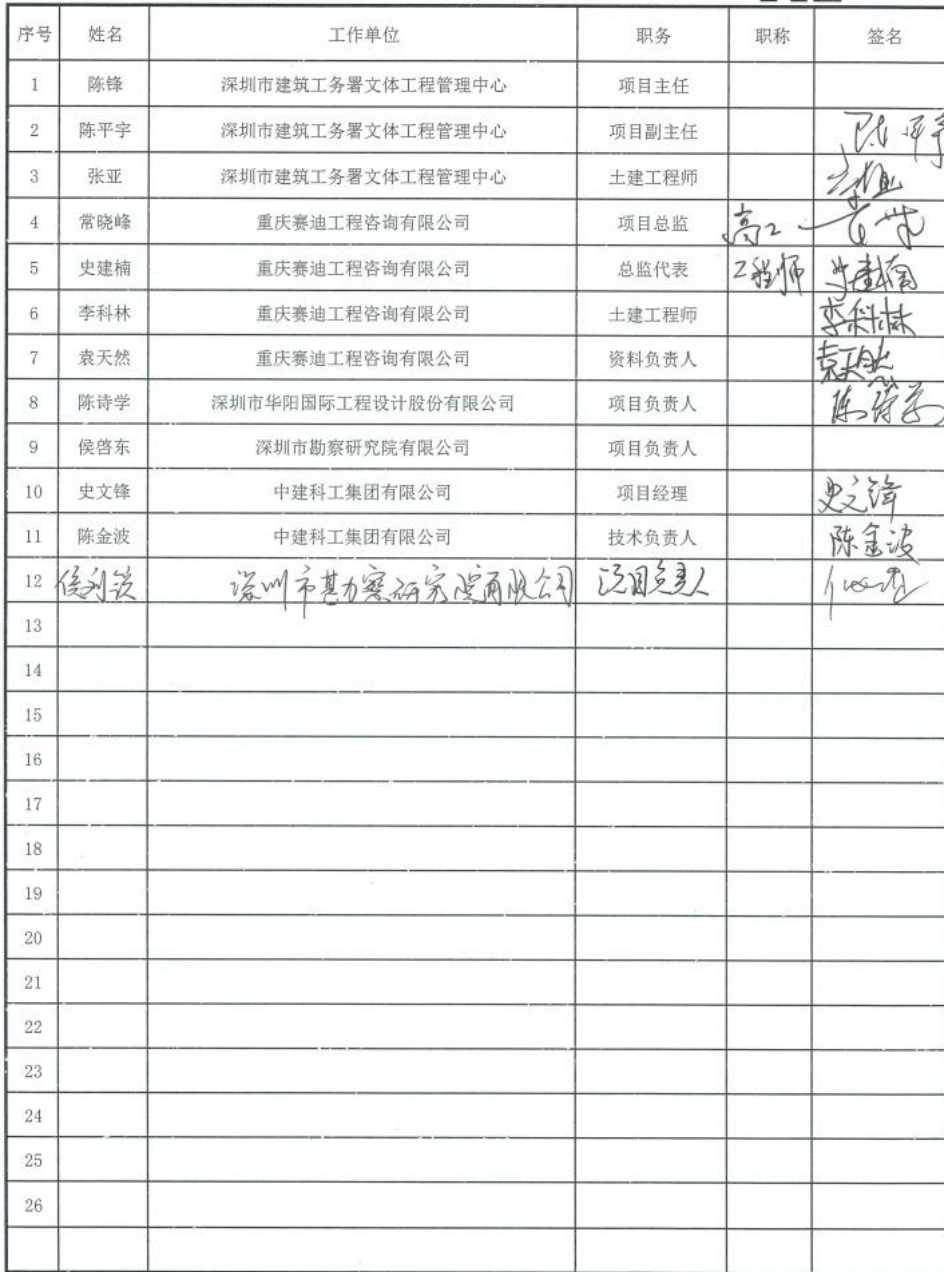 序号 姓名 工作单位 职务 职称 签名
1 陈锋 深圳市建筑工务署文体工程管理中心 项目主任
2 陈平宇 深圳市建筑工务署文体工程管理中心 项目副主任 陈平宇
3 张亚 深圳市建筑工务署文体工程管理中心 土建工程师
4 常晓峰 重庆赛迪工程咨询有限公司 项目总监 高工
5 史建楠 重庆赛迪工程咨询有限公司 总监代表 工程师 史建楠
6 李科林 重庆赛迪工程咨询有限公司 土建工程师 李科林
7 袁天然 重庆赛迪工程咨询有限公司 资料负责人 袁天然
8 陈诗学 深圳市华阳国际工程设计股份有限公司 项目负责人 陈诗学
9 侯啓东 深圳市勘察研究院有限公司 项目负责人
10 史文锋 中建科工集团有限公司 项目经理 史文锋
11 陈金波 中建科工集团有限公司 技术负责人 陈金波
12 深圳市勘察研究院有限公司 项目负责人
13
14
15
16
17
18
19
20
21
22
23
24
25
26